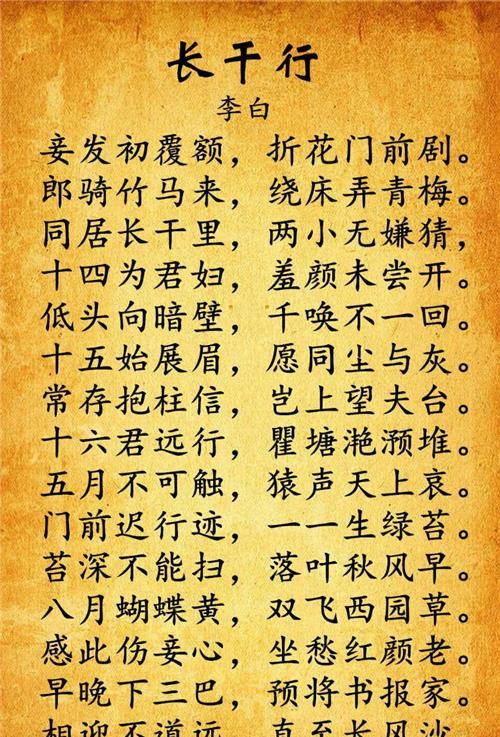 长干行
李白
妾发初覆额，折花门前剧。
郎骑竹马来，绕床弄青梅。
同居长干里，两小无嫌猜，
十四为君妇，羞颜未尝开。
低头向暗壁，千唤不一回。
十五始展眉，愿同尘与灰。
常存抱柱信，岂上望夫台。
十六君远行，瞿塘滟滪堆。
五月不可触，猿声天上哀。
门前迟行迹，一一生绿苔。
苔深不能扫，落叶秋风早。
八月蝴蝶黄，双飞西园草。
感此伤妾心，坐愁红颜老。
早晚下三巴，预将书报家。
相迎不道远，直至长风沙